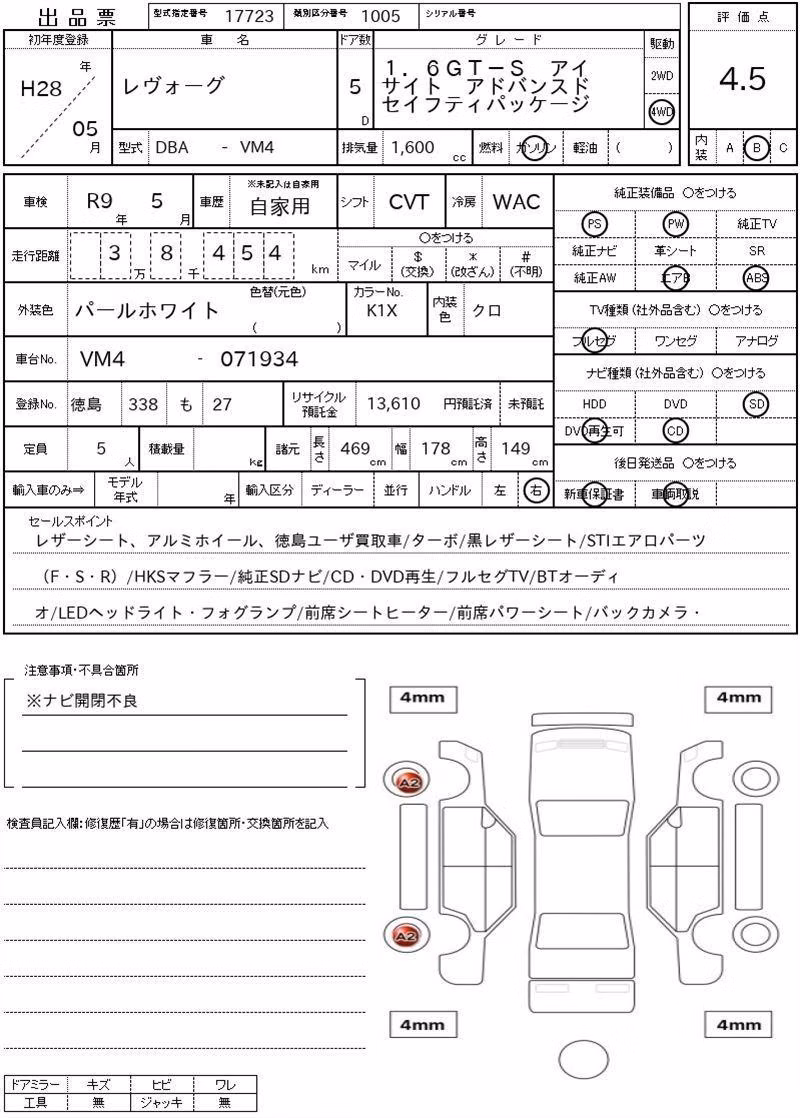 出品票 型式指定番号 17723 類別区分番号 1005 シリアル番号
評価点
4.5
初年度登録 車名 ドア数 グレード 駆動
H28 年 05 月
レヴォーグ
5 D
1．6GT－S アイ
サイト アドバンスド
セイフティパッケージ
2WD
4WD
型式 DBA - VM4 排気量 1,600 cc 燃料 ガソリン 軽油 ( )
内装 A B C
車検 R9 年 5 月 車歴 ※未記入は自家用 自家用 シフト CVT 冷房 WAC
走行距離 3 万 8 千 4 5 4 km
○をつける
マイル $ (交換) * (改ざん) # (不明)
外装色 パールホワイト 色替(元色) ( ) カラーNo. K1X 内装色 クロ
車台No. VM4 - 071934
登録No. 徳島 338 も 27 リサイクル預託金 13,610 円預託済 未預託
定員 5 人 積載量 kg 諸元 長さ 469 cm 幅 178 cm 高さ 149 cm
輸入車のみ⇒ モデル年式 年 輸入区分 ディーラー 並行 ハンドル 左 右
純正装備品 ○をつける
PS PW 純正TV
純正ナビ 革シート SR
純正AW エアB ABS
TV種類(社外品含む) ○をつける
フルセグ ワンセグ アナログ
ナビ種類(社外品含む) ○をつける
HDD DVD SD
DVD再生可 CD
後日発送品 ○をつける
新車保証書 車両取説
セールスポイント
レザーシート、アルミホイール、徳島ユーザ買取車/ターボ/黒レザーシート/STIエアロパーツ
（F・S・R）/HKSマフラー/純正SDナビ/CD・DVD再生/フルセグTV/BTオーディ
オ/LEDヘッドライト・フォグランプ/前席シートヒーター/前席パワーシート/バックカメラ・
注意事項･不具合箇所
※ナビ開閉不良
検査員記入欄：修復歴｢有｣の場合は修復箇所･交換箇所を記入
4mm 4mm
A2
A2
4mm 4mm
ドアミラー キズ ヒビ ワレ
工具 無 ジャッキ 無